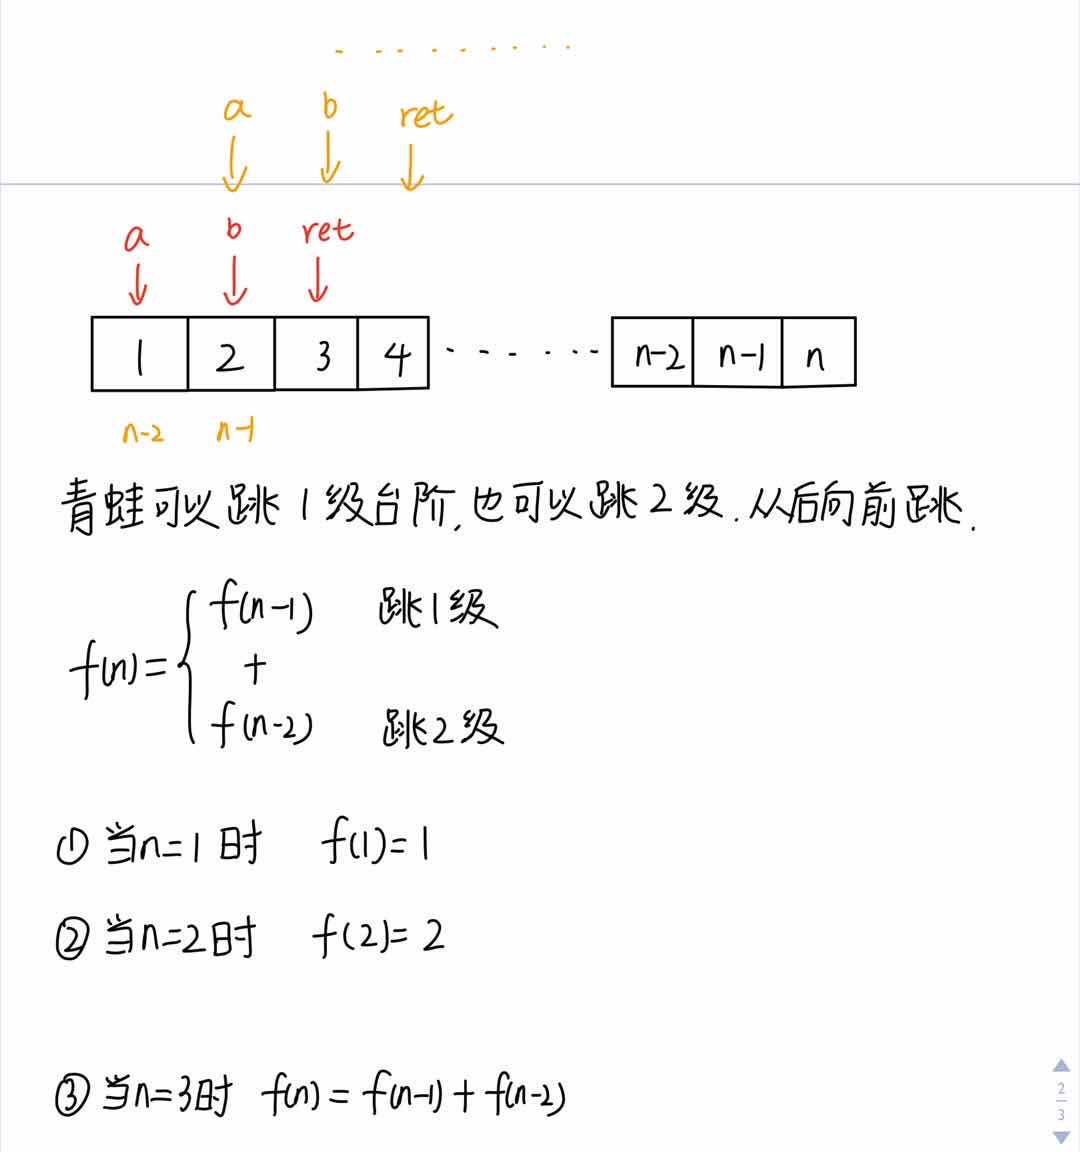 a b ret
a b ret
1 2 3 4 ...... n-2 n-1 n
n-2 n-1
青蛙可以跳1级台阶,也可以跳2级.从后向前跳.
f(n-1) 跳1级
f(n)= +
f(n-2) 跳2级
① 当n=1时 f(1)=1
② 当n=2时 f(2)=2
③ 当n=3时 f(n)=f(n-1)+f(n-2)
2
3